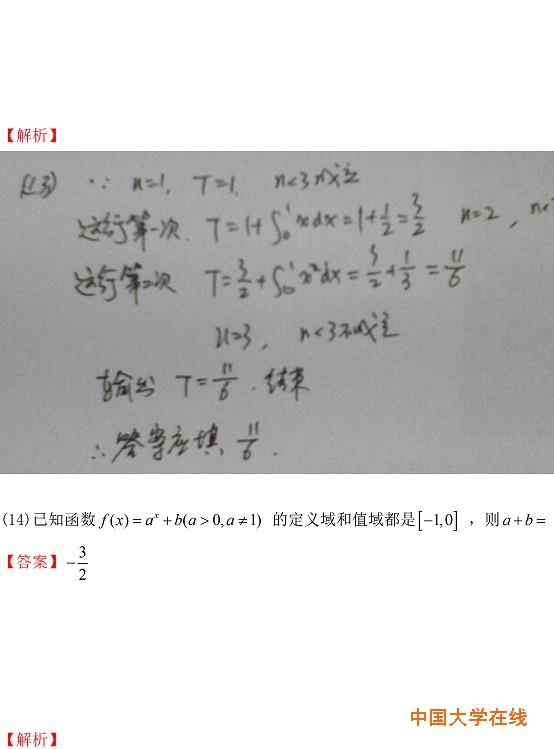 【解析】
(13) ∵ n=1, T=1, n<3成立
运行第一次 T=1+∫₀¹xdx=1+1/2=3/2 n=2, n<
运行第二次 T=3/2+∫₀¹x²dx=3/2+1/3=11/6
n=3, n<3不成立
输出 T=11/6. 结束
∴答案应填 11/6.
(14)已知函数 f(x)=aˣ+b(a>0,a≠1) 的定义域和值域都是[-1,0] ，则a+b=
【答案】-3/2
中国大学在线
【解析】